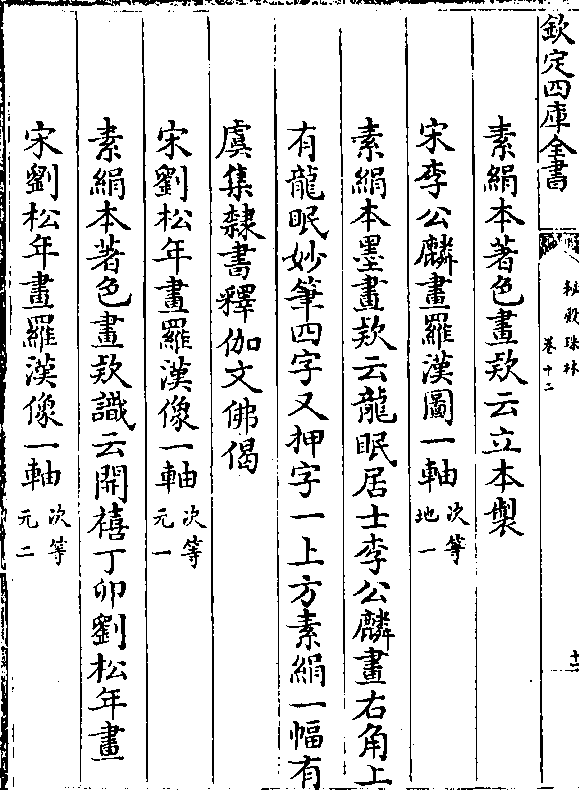 欽定四庫全書
秘殿珠林
卷十二
十二
素絹本著色畫款云立本製
宋李公麟畫羅漢圖一軸次等地一
素絹本墨畫款云龍眠居士李公麟畫右角上
有龍眠妙筆四字又押字一上方素絹一幅有
虞集隸書釋伽文佛偈
宋劉松年畫羅漢像一軸次等元一
素絹本著色畫款識云開禧丁卯劉松年畫
宋劉松年畫羅漢像一軸次等元二